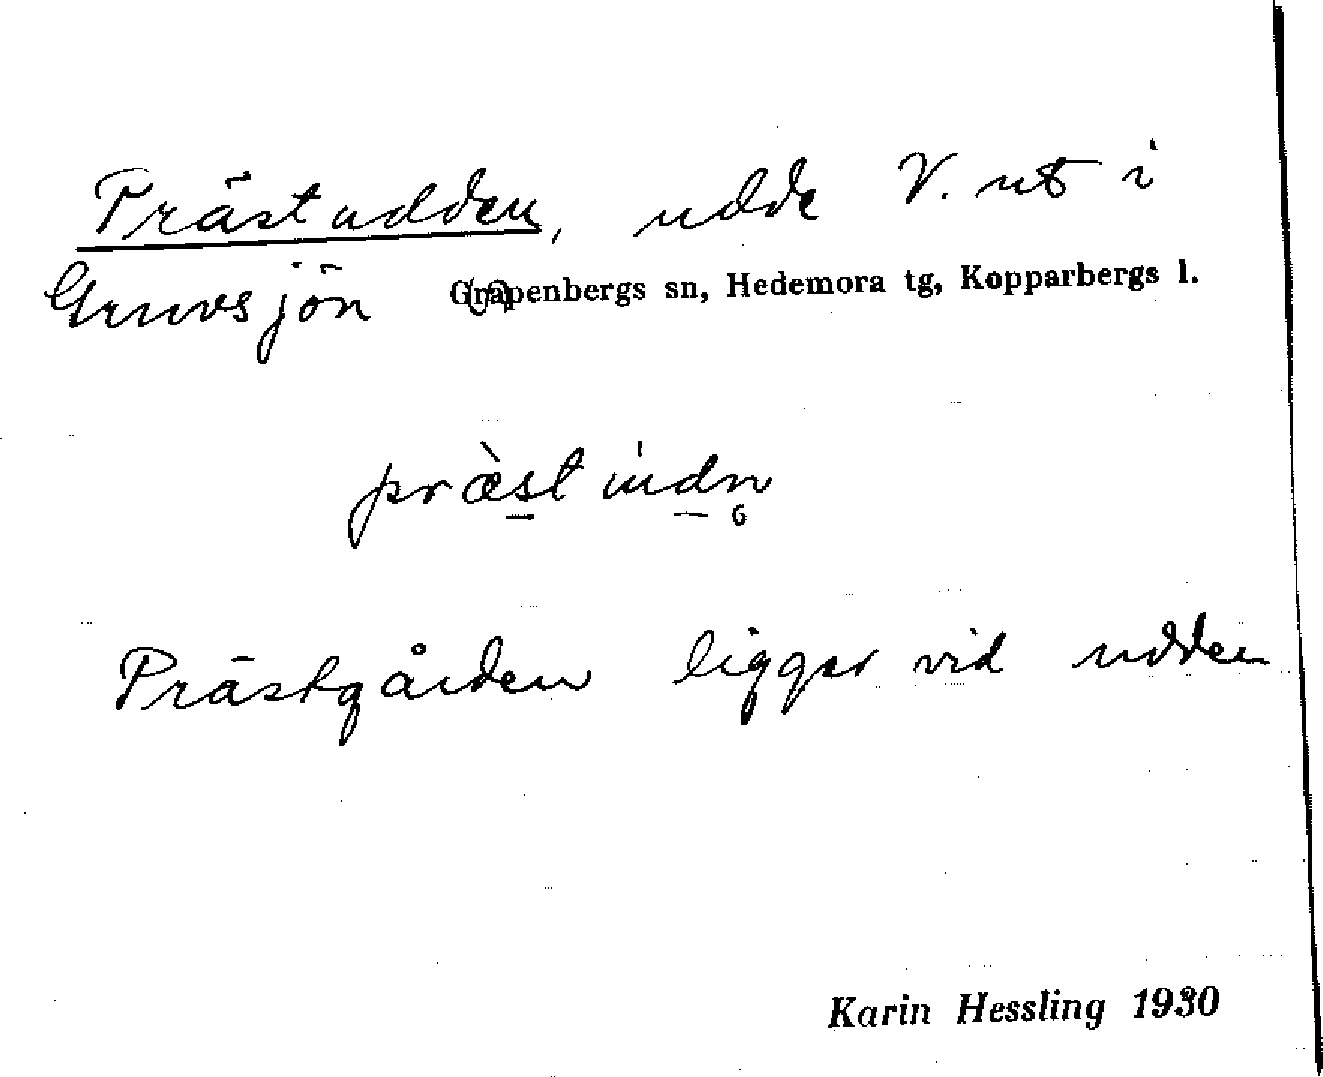 Prästudden, udde V. ut i
Gruvsjön Garpenbergs sn, Hedemora tg, Kopparbergs l.
præ̀stúdn̥
Prästgården ligger vid udden
Karin Hessling 1930